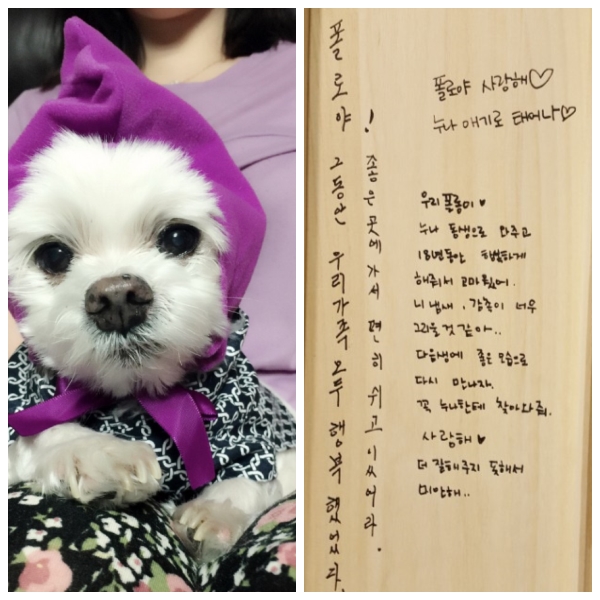 폴로야! 그동안 우리가족 모두 행복했었다.
좋은곳에 가서 편히 쉬고 있어라.
폴로야 사랑해♡
누나 애기로 태어나♡
우리 폴롱이♥
누나 동생으로 와주고
18년동안 행복하게
해줘서 고마웠어.
니 냄새, 감촉이 너무
그리울것 같아..
다음생에 좋은 모습으로
다시 만나자.
꼭 누나한테 찾아와줘.
사랑해♥
더 잘해주지 못해서
미안해..